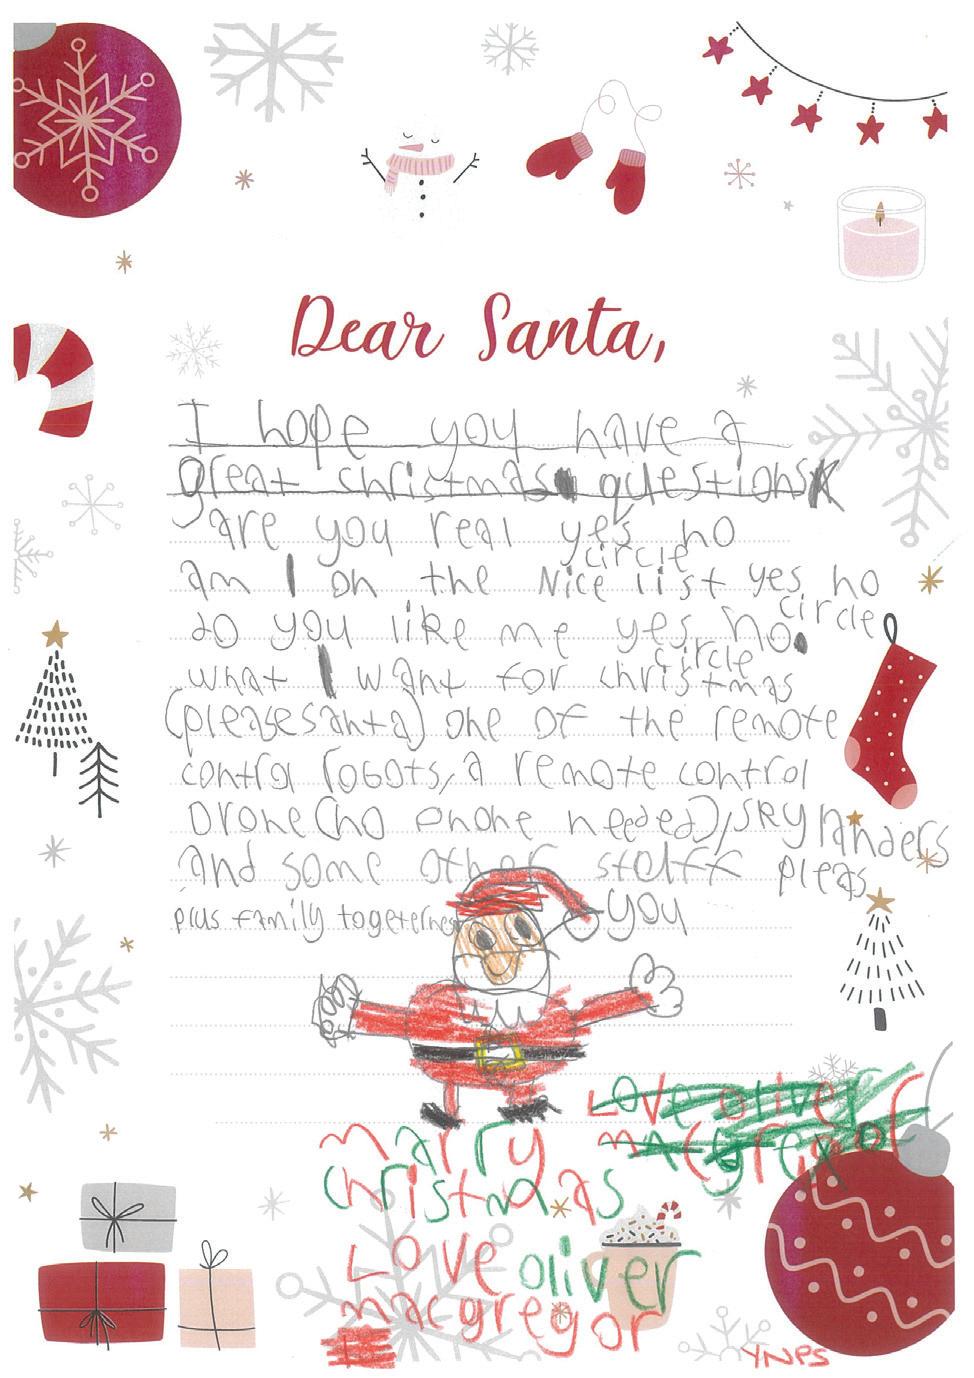 Dear Santa,
I hope you have a
great christmas questions
are you real yes no
circle
am I on the Nice list yes no
circle
do you like me yes no.
circle
what I want for christmas
(please santa) one of the remote
control robots, a remote control
Drone (no phone needed), skylanders
and some other stuff pleas
plus family togeterness you
Love oliver
macgregor
marry
christmas
Love oliver
macgregor
YNPS